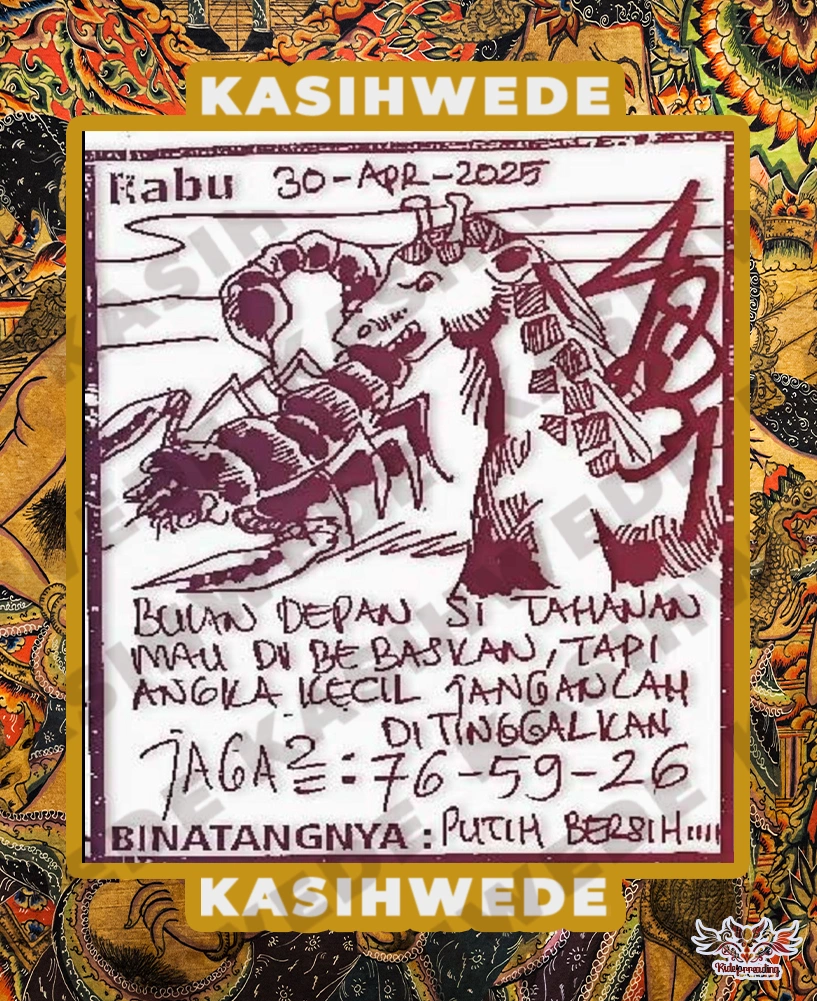 KASIHWEDE
Rabu 30-APR-2025
BULAN DEPAN SI TAHANAN
MAU DI BEBASKAN, TAPI
ANGKA KECIL JANGANLAH
DITINGGALKAN
JAGA2 = : 76-59-26
BINATANGNYA : PUTIH BERSIH,,,,
KASIHWEDE